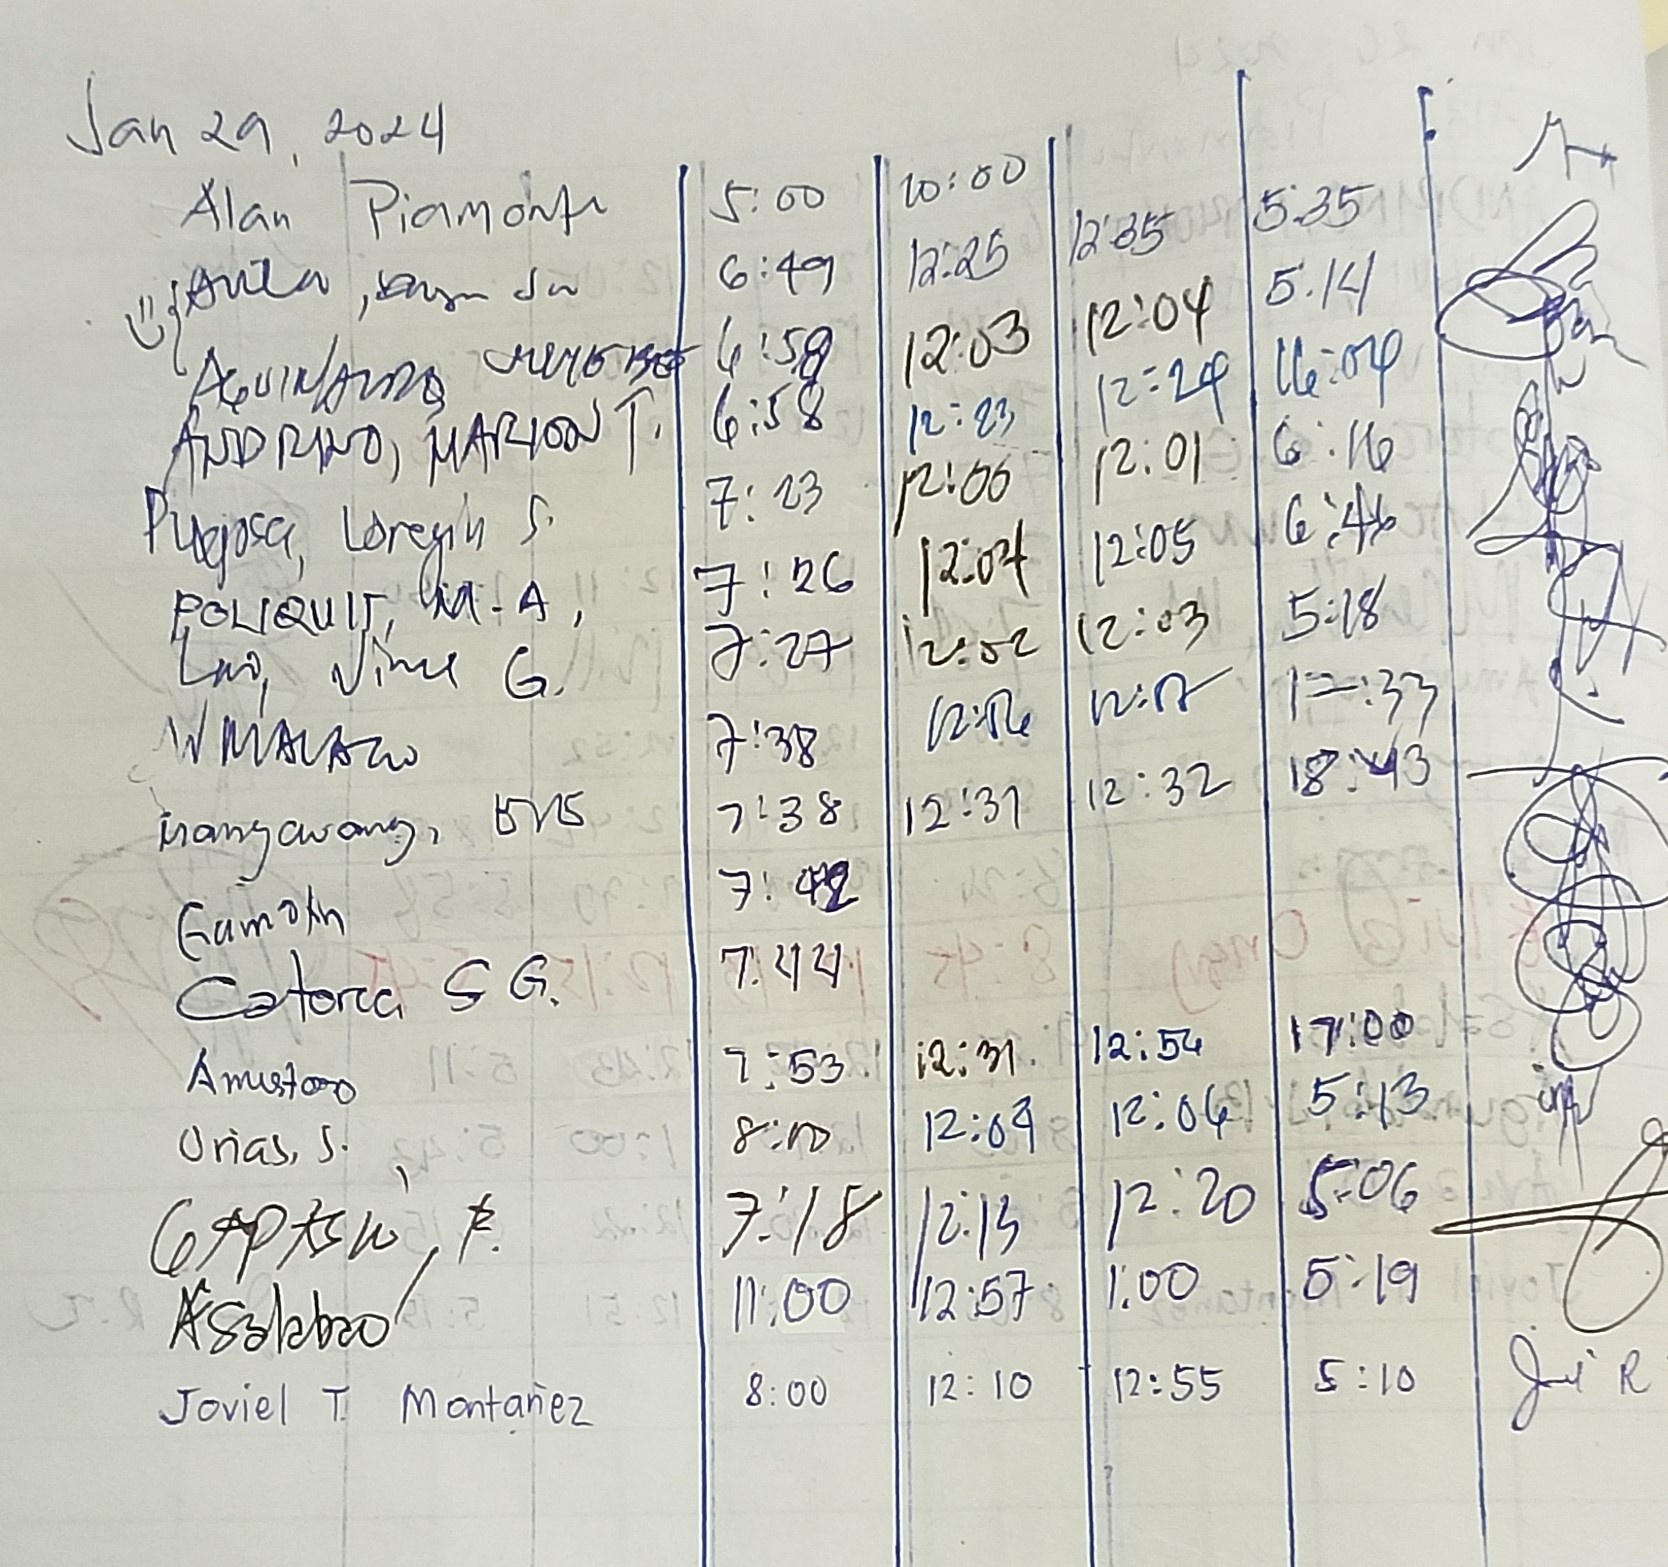 Jan 29, 2024
Alan Piamonte 5:00 10:00
Avila, 6:49 12:25 12:35 5:35
AGUINALDO, 6:58 12:03 12:04 5:14
ANDRINO, MARION T. 6:58 12:23 12:24 16:04
Pugosa, Loregin S. 7:23 12:00 12:01 6:16
POLIQUIT, M.A. 7:26 12:04 12:05 6:46
Lao, Vince G. 7:27 12:02 12:03 5:18
7:38 12:16 12:17 17:33
7:38 12:31 12:32 18:43
Gamotin 7:42
Catorca S G. 7:44
Amustoso 7:53 12:31 12:54 17:00
Urias, S. 8:10 12:04 12:06 5:13
7:18 12:13 12:20 5:06
ASalabao 11:00 12:57 1:00 5:19
Joviel T. Montañez 8:00 12:10 12:55 5:10